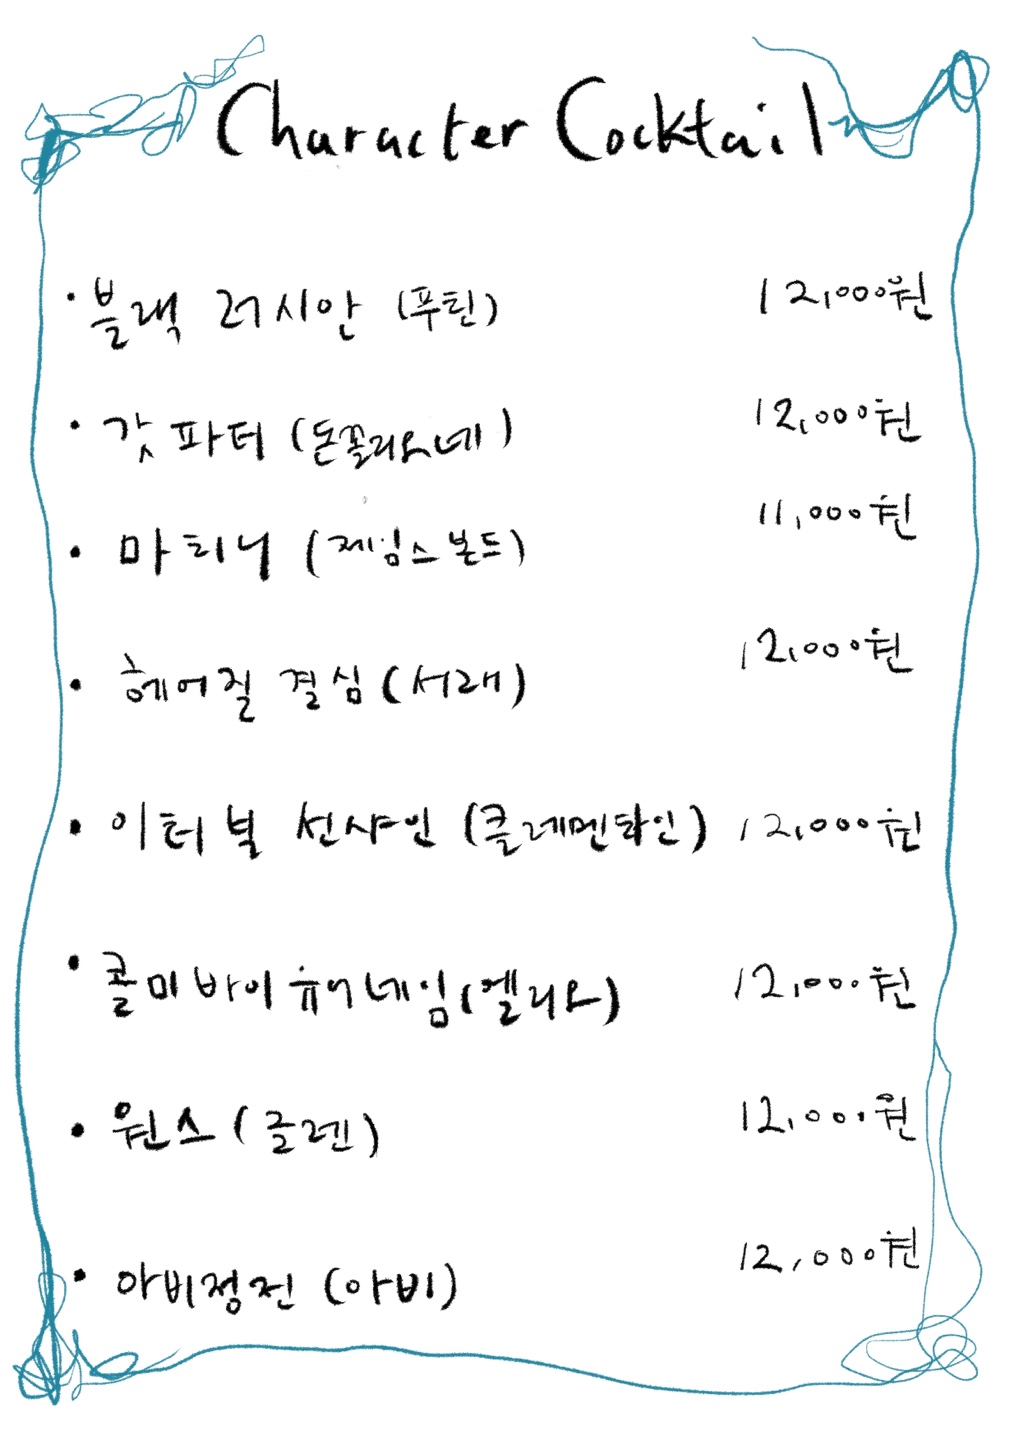 Character Cocktail
· 블랙 러시안 (푸틴) 12,000원
· 갓파터 (돈꼴리오네) 12,000원
· 마티니 (제임스본드) 11,000원
· 헤어질 결심 (서래) 12,000원
· 이터널 선샤인 (클레멘타인) 12,000원
· 콜미바이유어네임 (엘리오) 12,000원
· 원스 (글렌) 12,000원
· 아비정전 (아비) 12,000원